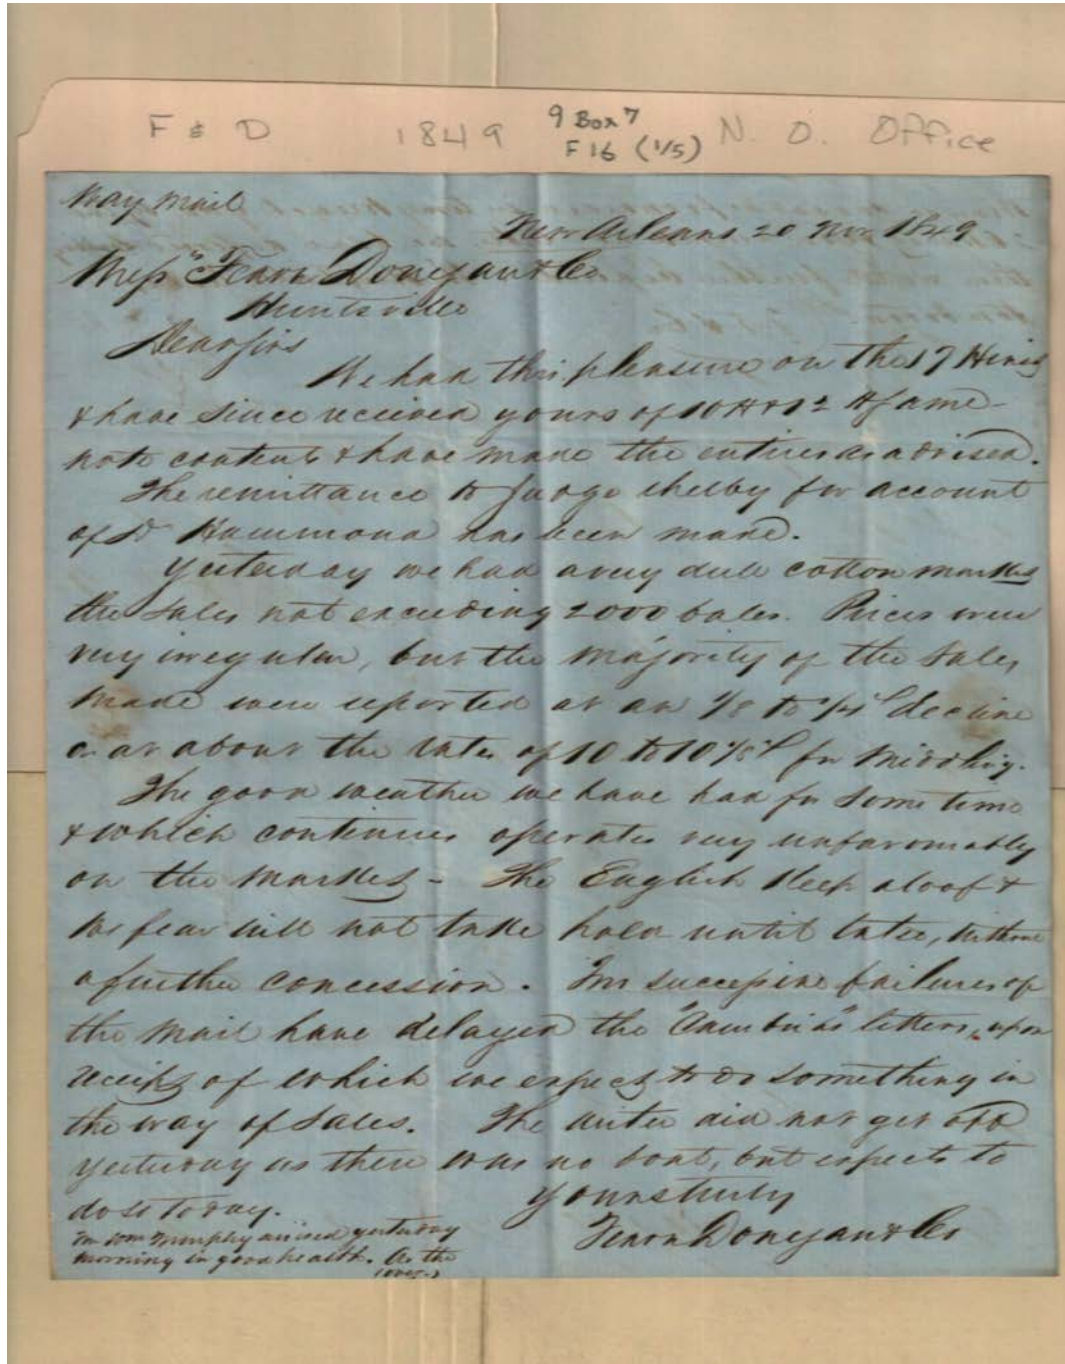 F & D 1849 9 Box 7 N. O. Office
F 16 (1/5)
Way Mail
New Orleans 20 Nov 1849
Mess" Fearn Donegan & Co
Huntsville
Dear Sirs
We had this pleasure on the 17 
& have since received yours of 10th & 12 of same
note contents & have made the entries as advised.
The remittance to Judge Shelby for account
of Dr Hammond has been made.
Yesterday we had a very dull cotton market
the sales not exceeding 2000 bales. Prices were
very irregular, but the majority of the sales
made were reported at an 1/8 to 1/4c decline
or at about the rates of 10 to 10 1/8c for middling.
The good weather we have had for some time
& which continues operates very unfavorably
on the market - The English keep aloof &
we fear will not take hold until later, without
a further concession. successive failures of
the mail have delayed the "Cambria's" letters, upon
receipt of which we expect to do something in
the way of sales. The writer did not get off
yesterday as there was no boat, but expects to
do so to day. Yours truly
Murphy arrived yesterday Fearn Donegan & Co
morning in good health. As the
(over)